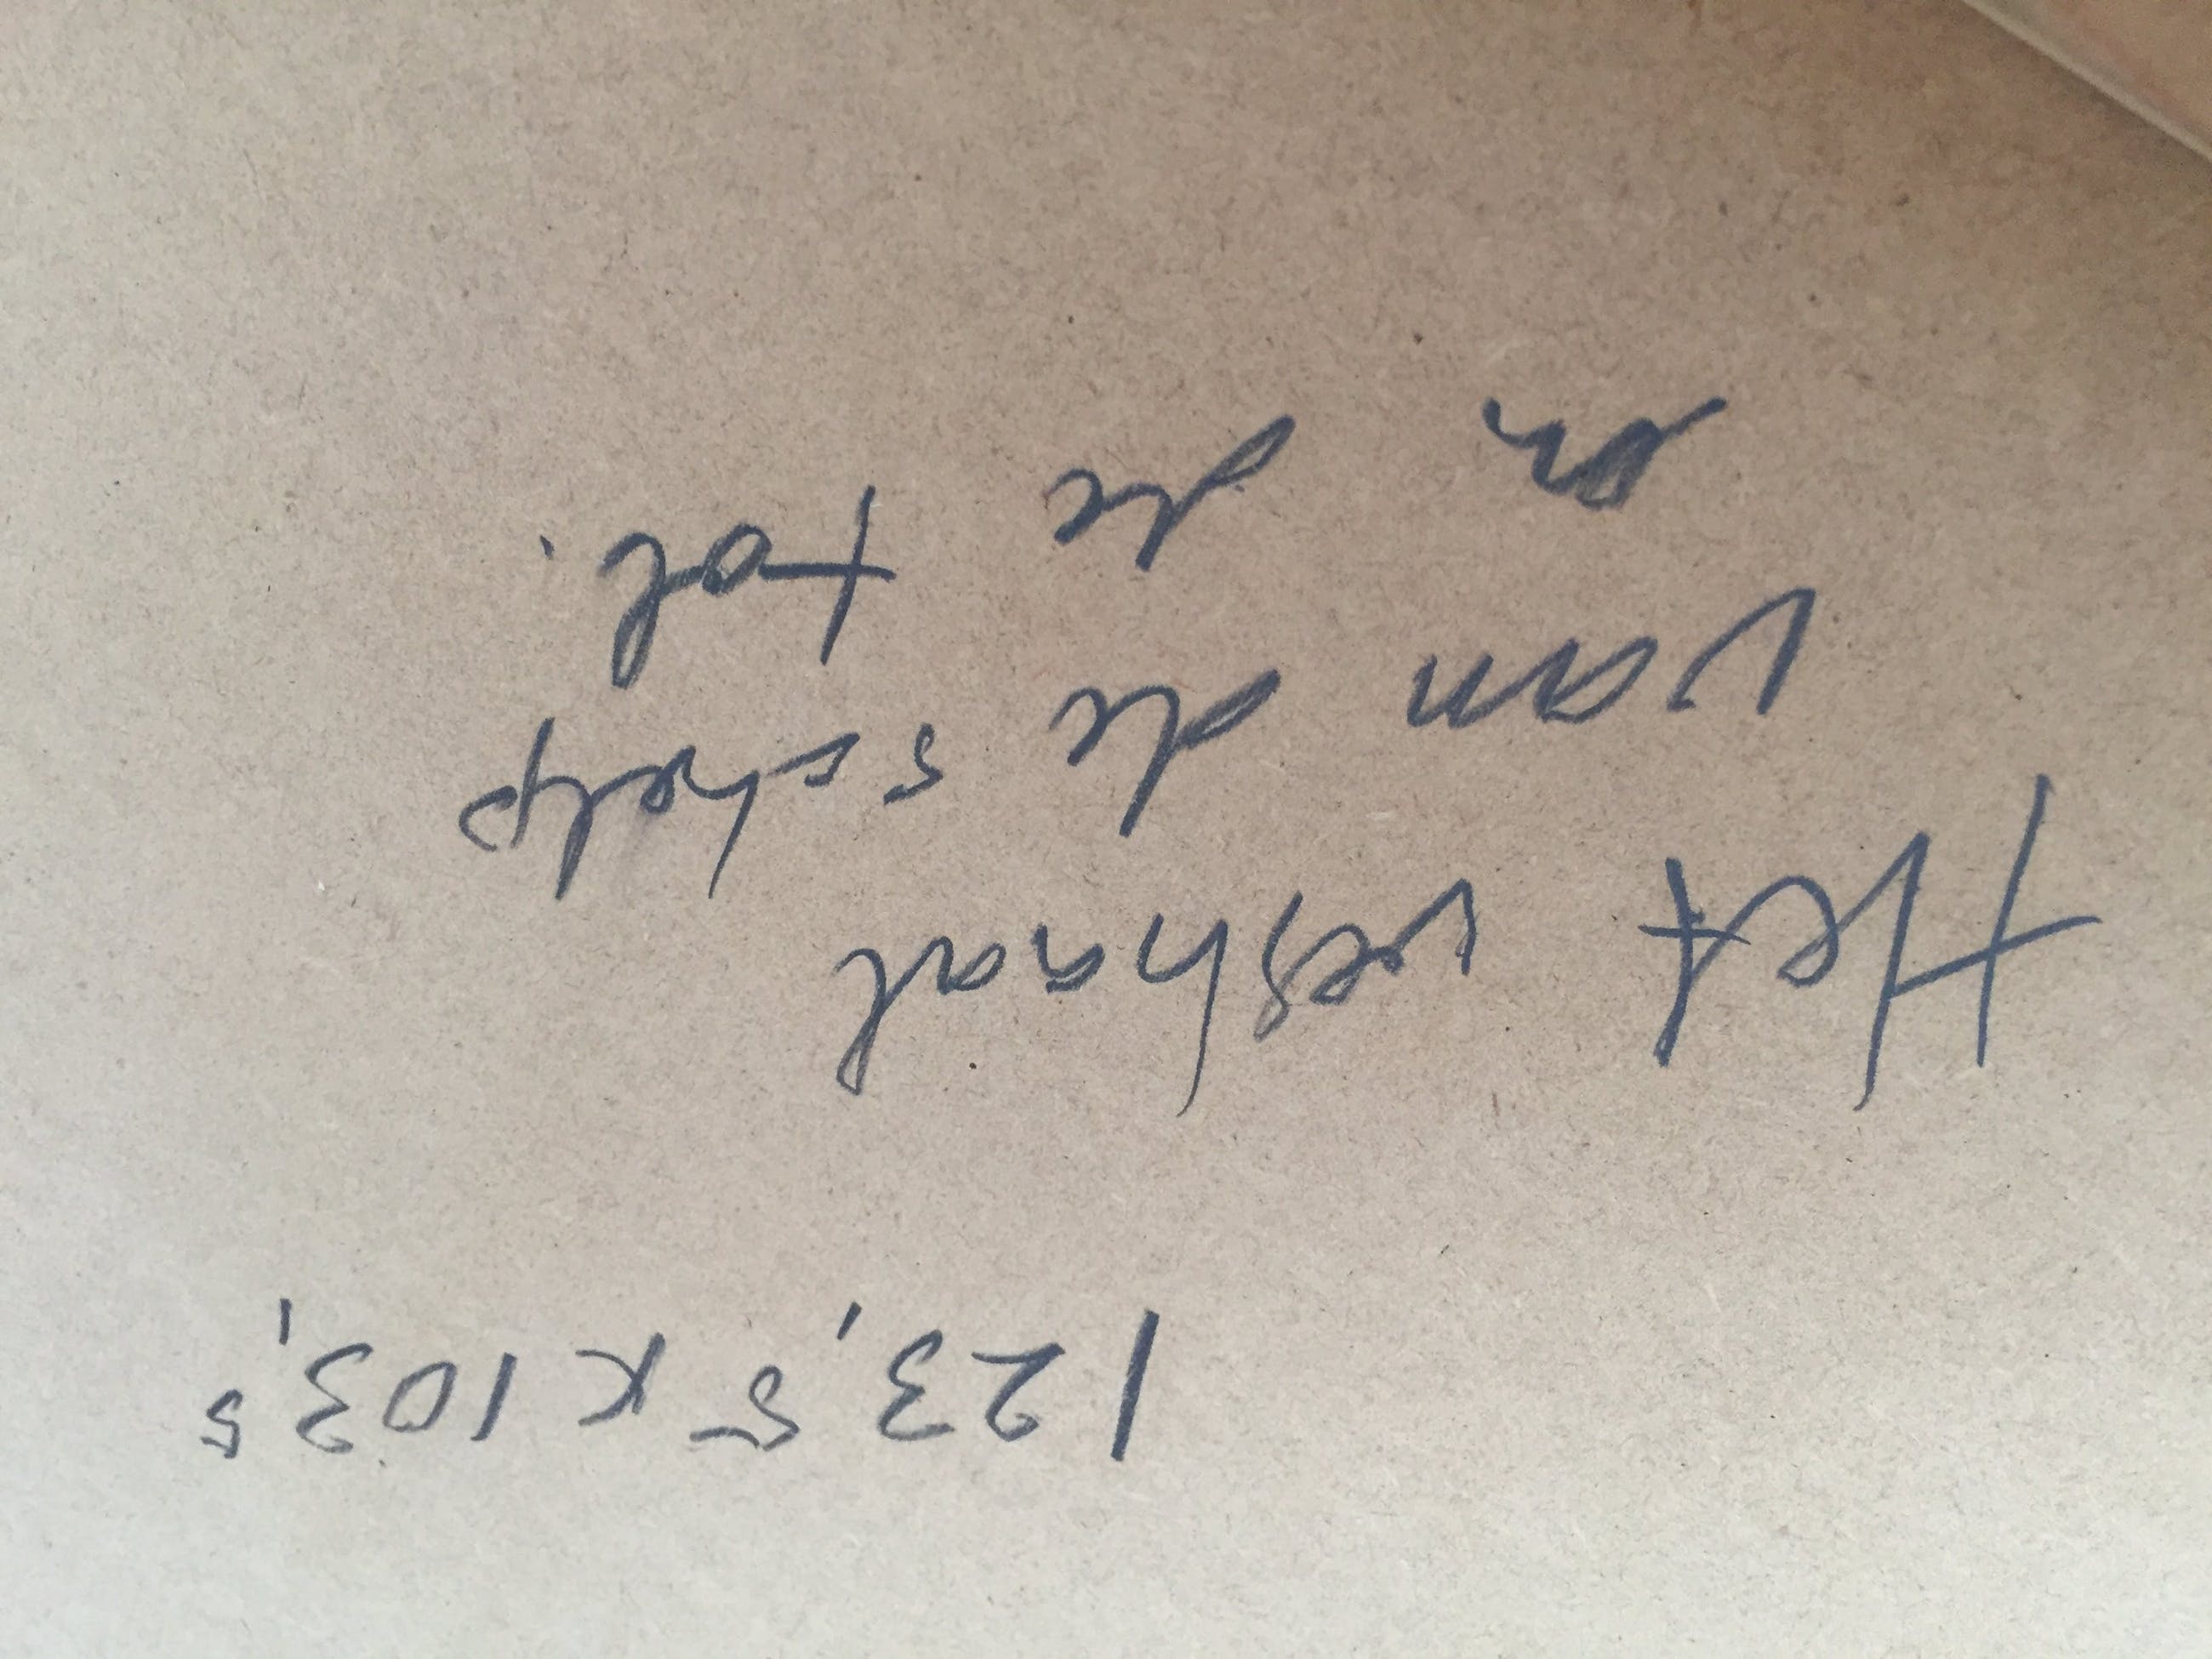 123,5 x 103,5
Het verhaal
van de schelp
en de tol.